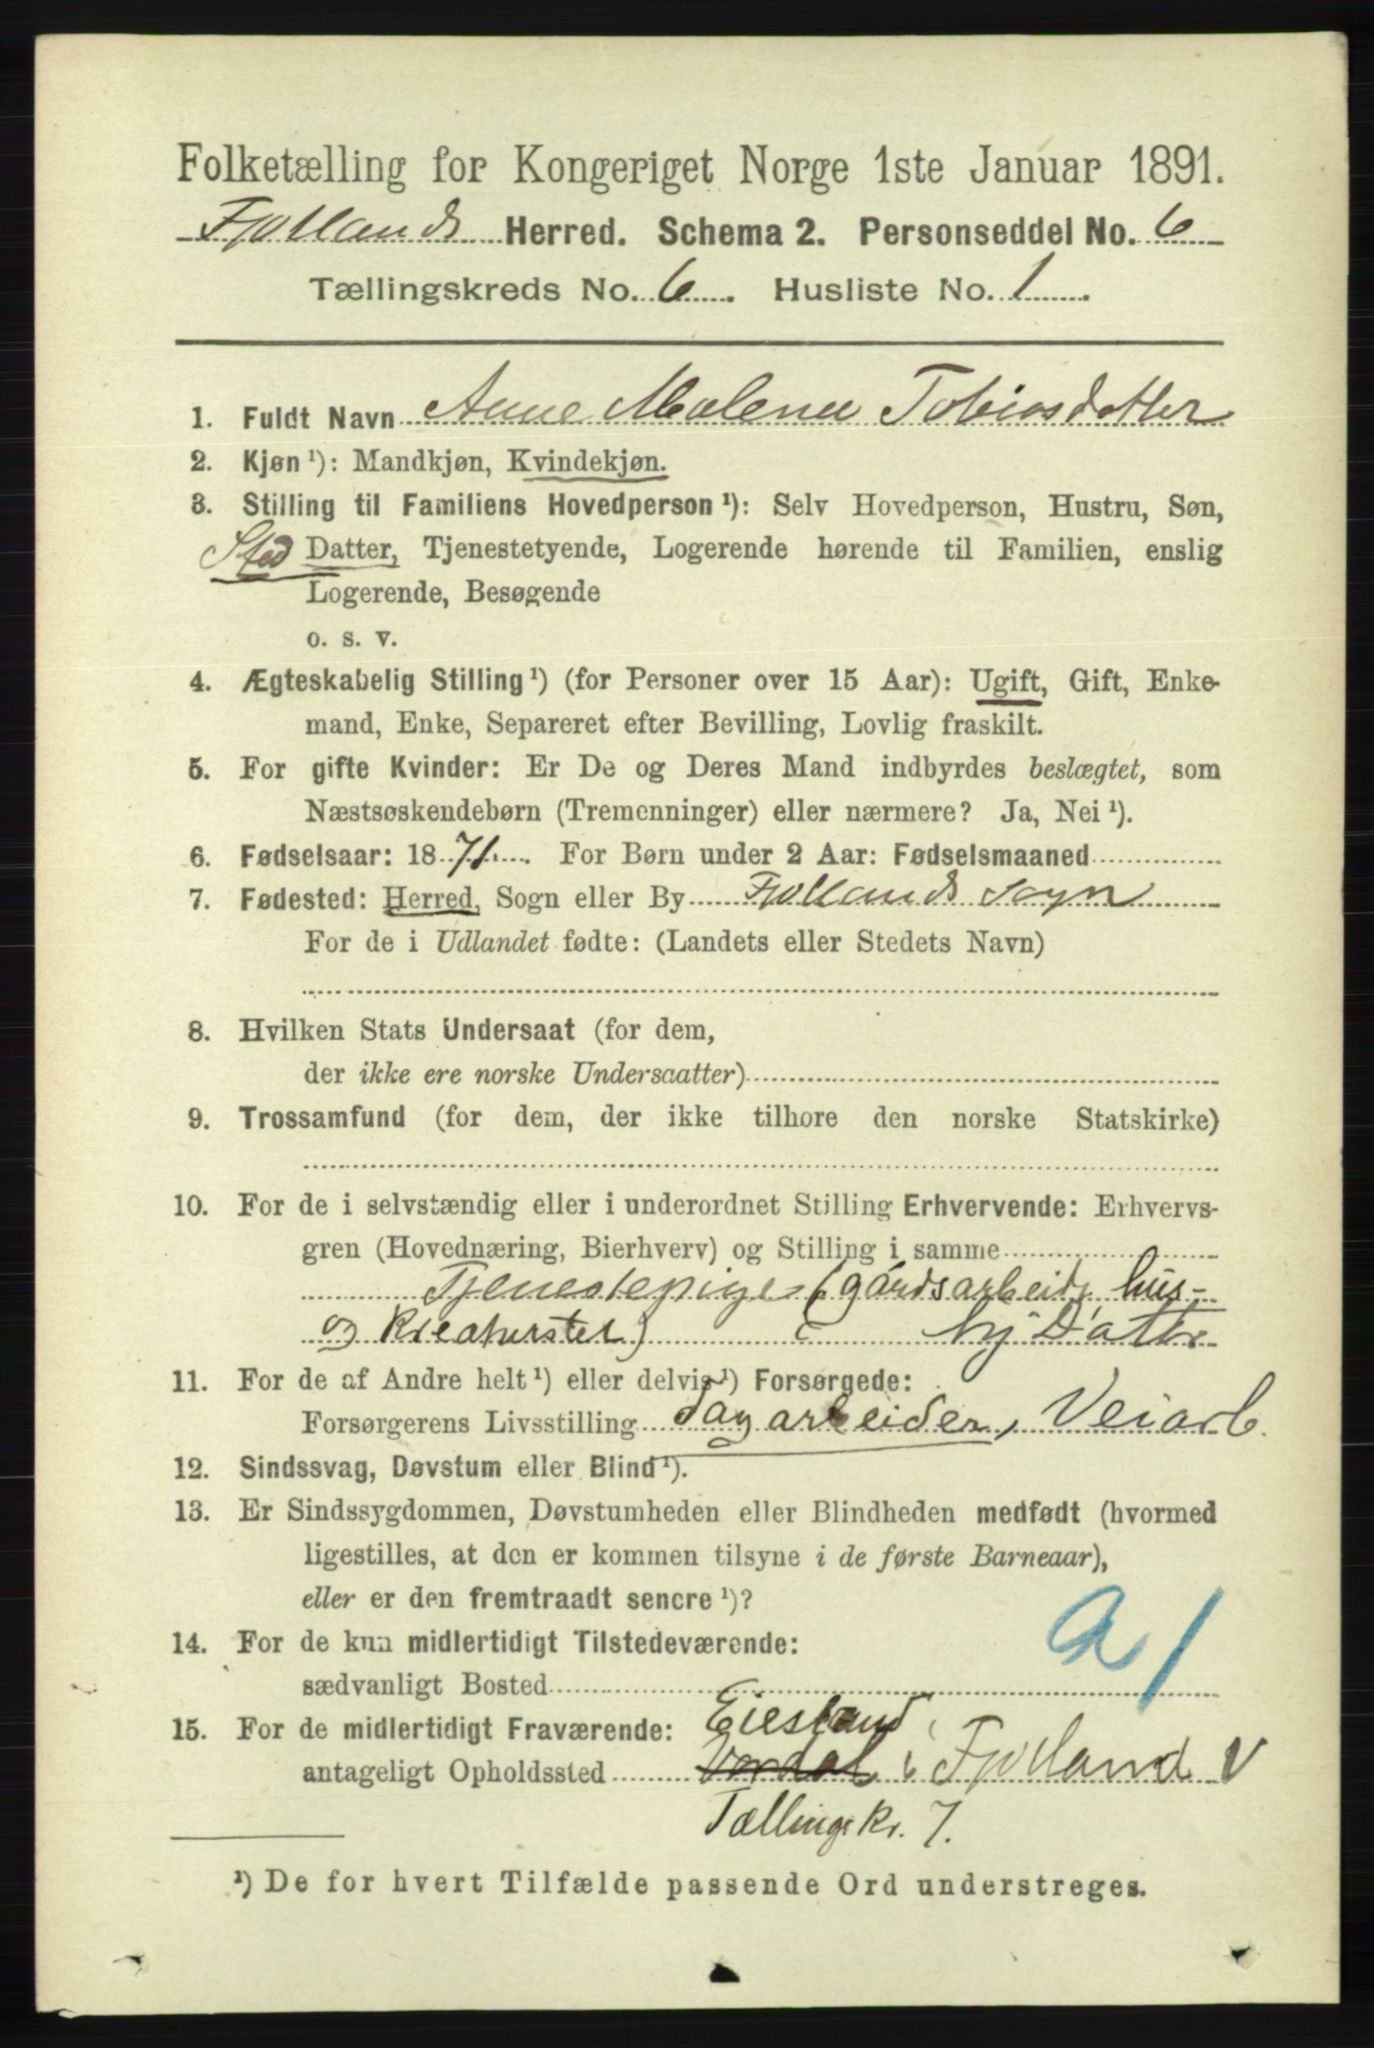 Folketælling for Kongeriget Norge 1ste Januar 1891.
Fjotlands Herred. Schema 2. Personseddel No. 6
Tællingskreds No. 6. Husliste No. 1.
1. Fuldt Navn Anne Malene Tobiasdatter
2. Kjøn ¹): Mandkjøn, Kvindekjøn.
3. Stilling til Familiens Hovedperson ¹): Selv Hovedperson, Hustru, Søn,
Sted Datter, Tjenestetyende, Logerende hørende til Familien, enslig
Logerende, Besøgende
o. s. v.
4. Ægteskabelig Stilling ¹) (for Personer over 15 Aar): Ugift, Gift, Enke-
mand, Enke, Separeret efter Bevilling, Lovlig fraskilt.
5. For gifte Kvinder: Er De og Deres Mand indbyrdes beslægtet, som
Næstsøskendebørn (Tremenninger) eller nærmere? Ja, Nei ¹).
6. Fødselsaar: 1871. For Børn under 2 Aar: Fødselsmaaned
7. Fødested: Herred, Sogn eller By Fjotlands Sogn
For de i Udlandet fødte: (Landets eller Stedets Navn)
8. Hvilken Stats Undersaat (for dem,
der ikke ere norske Undersaatter)
9. Trossamfund (for dem, der ikke tilhøre den norske Statskirke)
10. For de i selvstændig eller i underordnet Stilling Erhvervende: Erhvervs-
gren (Hovednæring, Bierhverv) og Stilling i samme
Tjenestepige (gårdsarbeid, hus-
og kreaturstel) hj Datter
11. For de af Andre helt ¹) eller delvis ¹) Forsørgede:
Forsørgerens Livsstilling dagarbeider, Veiarb.
12. Sindssvag, Døvstum eller Blind ¹).
13. Er Sindssygdommen, Døvstumheden eller Blindheden medfødt (hvormed
ligestilles, at den er kommen tilsyne i de første Barneaar),
eller er den fremtraadt senere ¹)?
14. For de kun midlertidigt Tilstedeværende:
sædvanligt Bosted
15. For de midlertidigt Fraværende: Eiesland
antageligt Opholdssted i Fjotland
Tællingskr. 7.
¹) De for hvert Tilfælde passende Ord understreges.